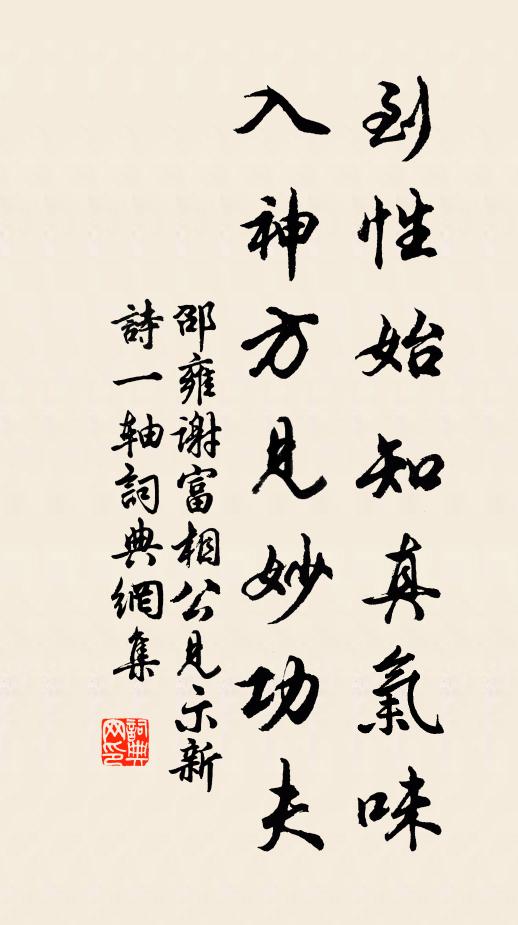 到性始知真氣味
入神方見妙功夫
邵雍謝富相公見示新
詩一軸詞典網集
詞典網印